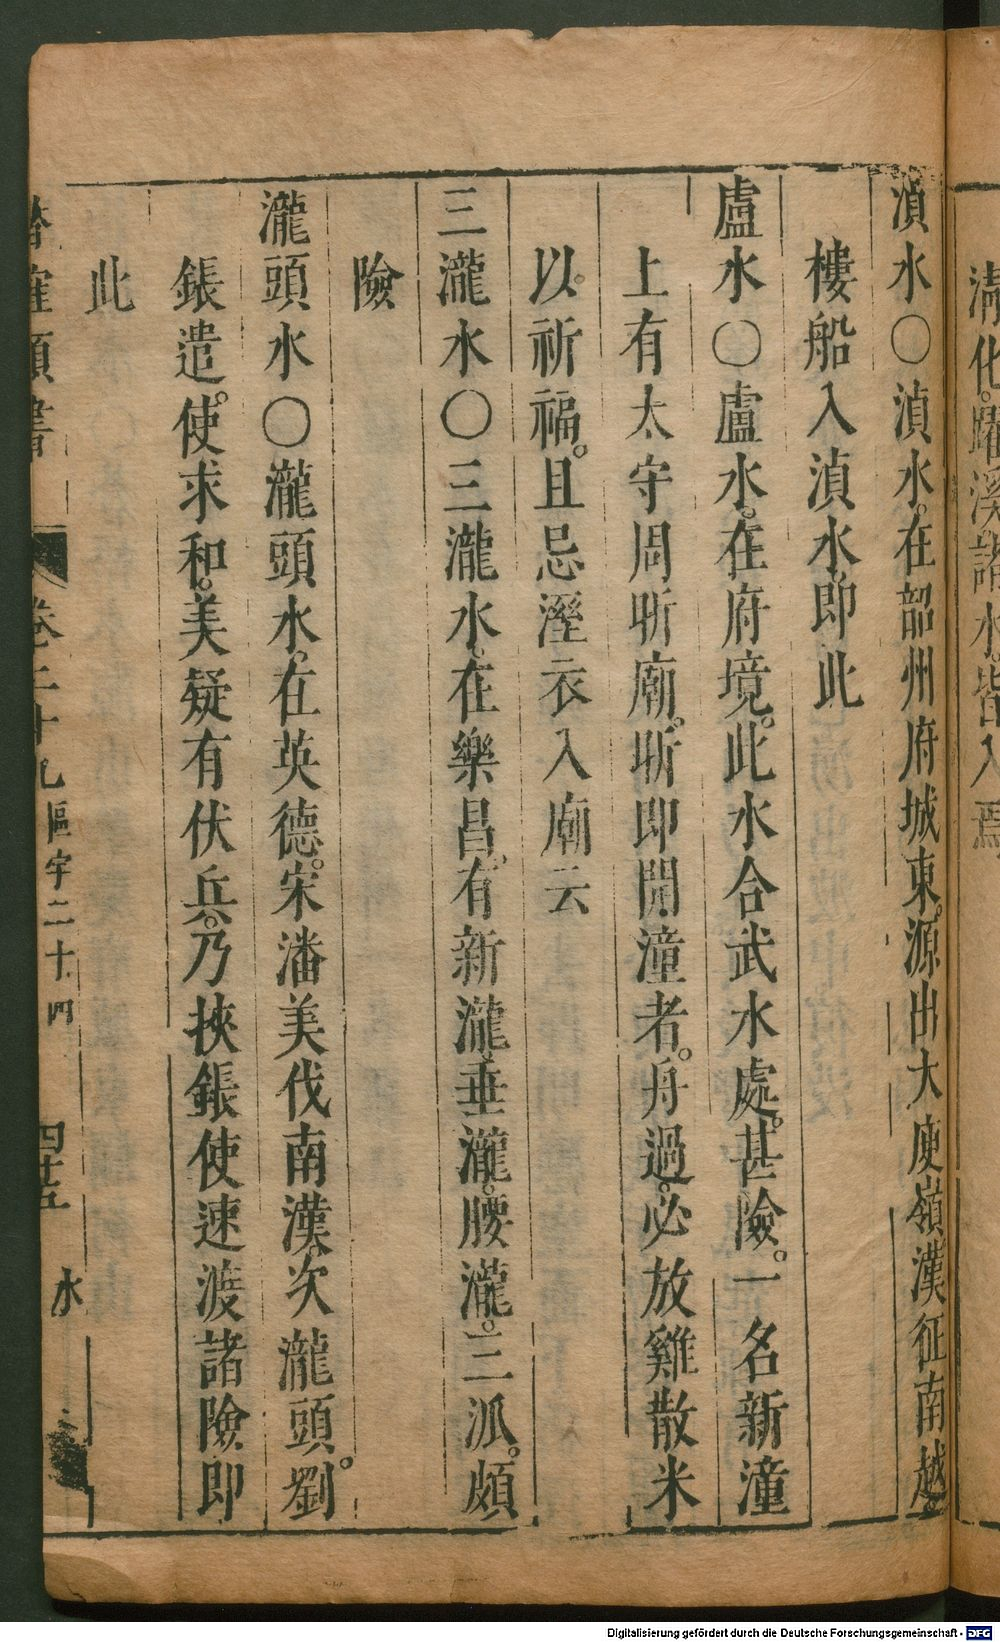 溝化。躍溪諸水。皆入焉
湞水○湞水。在韶州府城東。源出大庾嶺漢征南越
樓船入湞水即此
盧水○盧水。在府境。此水合武水處。甚險。一名新潼
上有太守周昕廟。昕即開潼者。舟過。必放雞散米
以。祈福。且忌溼衣入廟云
三瀧水○三瀧水。在樂昌。有新瀧垂瀧。腰瀧。三派。頗
險
瀧頭水○瀧頭水。在英德。宋潘美伐南漢次瀧頭。劉
鋹遣。使求和。美疑有伏兵。乃挾鋹使速渡諸險即
此
類書 卷二十九 區宇二十四 四十五 水
Digitalisierung gefördert durch die Deutsche Forschungsgemeinschaft - DFG